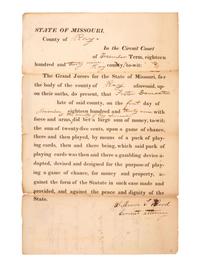 STATE OF MISSOURI.
County of Ray,
In the Circuit Court
of November Term, eighteen
hundred and thirty Ray county, to-wit:
The Grand Jurors for the State of Missouri, for
the body of the county of Ray aforesaid, up-
on their oaths, do present, that
late of said county, on the first day of
November eighteen hundred and thirty
force and arms did bet a large sum of money, to-wit:
the sum of twenty-five cents, upon a game of chance,
there and then played, by means of a pack of play-
ing cards, then and there being, which said pack of
playing cards was then and there a gambling device a-
dapted, devised and designed for the purpose of play-
ing a game of chance, for money and property, a-
gainst the form of the Statute in such case made and
provided, and against the peace and dignity of the
State.
Wood
Circuit Attorney